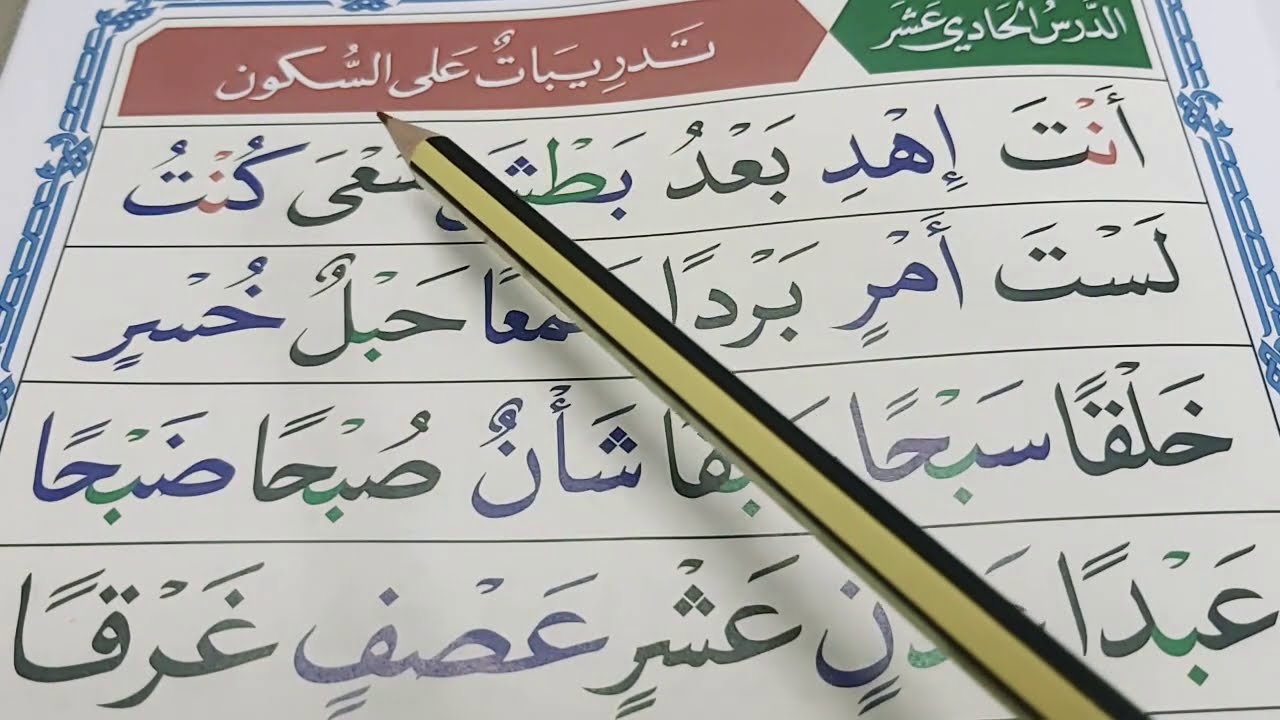 الدَّرسُ الحَادِي عَشَر
تَدرِيبَاتٌ عَلى السُّكون
أَنْتَ إِهْدِ بَعْدُ كُنْتُ
لَسْتَ أَمْرٍ بَرْدًا حَبْلٌ خُسْرٍ
خَلْقًا سَبْحًا شَأْنٌ صُبْحًا ضَبْحًا
عَبْدًا عَشْرٍ عَصْفٍ غَرْقًا